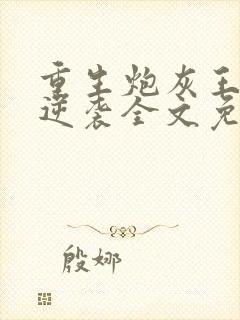 重生炮灰王
逆袭全文免
殷娜